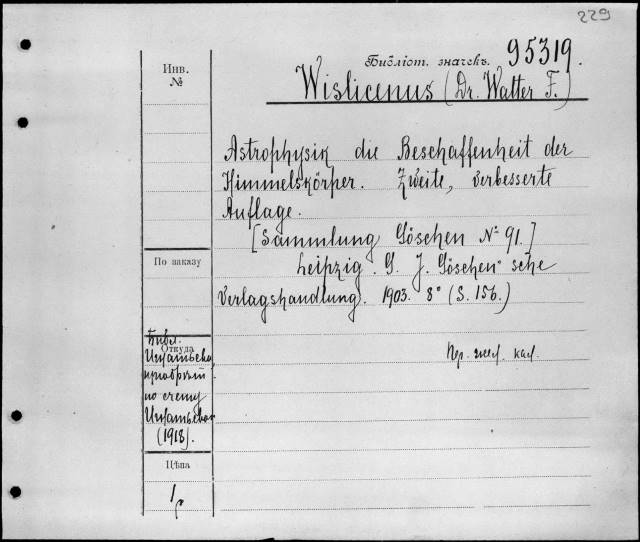 229
Библіот. значекъ.
95319.
Инв.
№
Wislicenus (Dr. Walter F.)
Astrophysik die Beschaffenheit der
Himmelskörper. Zweite, verbesserte
Auflage.
[Sammlung Göschen № 91.]
По заказу
Leipzig. G. J. Göschen'sche
Verlagshandlung. 1903. 8° (S. 156.)
Библ.
Откуда
Игнатьева,
по счету
Игнатьева
(1918).
Цѣна
1